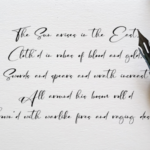 The Sun arises in the East
Cloth'd in robes of blood and gold
Swords and spears and wrath increast
All around his bosom roll'd
Crown'd with warlike fires and raging desires